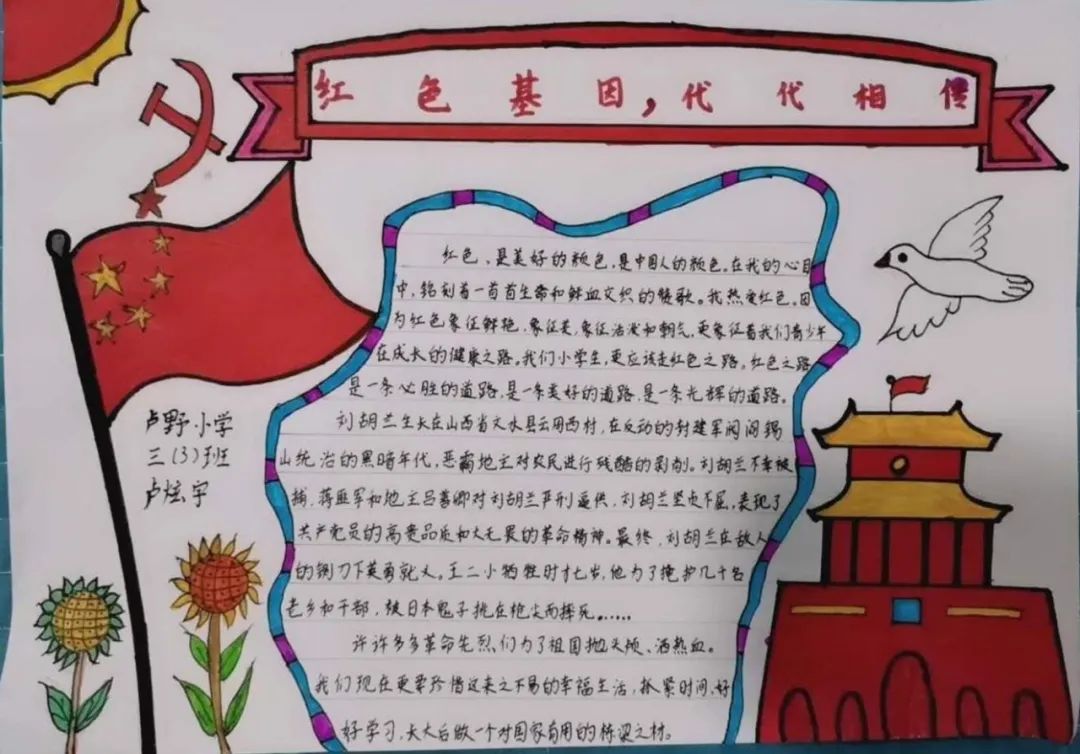 红色基因,代代相传
红色,是美好的颜色,是中国人的颜色。在我的心目
中,铭刻着一首首生命和鲜血交织的赞歌。我热爱红色。因
为红色象征鲜艳,象征美,象征活泼和朝气,更象征着我们青少年
在成长的健康之路。我们小学生,更应该走红色之路。红色之路
是一条必胜的道路,是一条美好的道路,是一条光辉的道路。
刘胡兰生长在山西省文水县云周西村,在反动的封建军阀阎锡
山统治的黑暗年代,恶霸地主对农民进行残酷的剥削。刘胡兰不幸被
捕,蒋匪军和地主吕善卿对刘胡兰严刑逼供,刘胡兰坚贞不屈,表现了
共产党员的高贵品质和大无畏的革命精神。最终,刘胡兰在敌人
的铡刀下英勇就义。王二小牺牲时才七岁,他为了掩护几十名
老乡和干部,被日本鬼子挑在枪尖而摔死。.....
许许多多革命先烈们为了祖国抛头颅、洒热血。
我们现在更要珍惜这来之不易的幸福生活,抓紧时间,好
好学习,长大后做一个对国家有用的栋梁之材。
卢野小学
三(3)班
卢炫宇